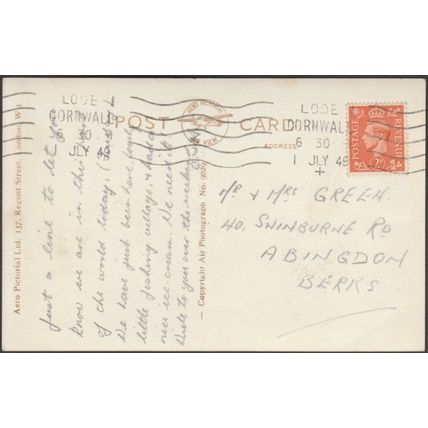 POST CARD
AERO PICTORIAL
AIR VIEW
ADDRESS
LOOE
CORNWALL
6 30
JLY 49
LOOE
CORNWALL
6 30
1 JLY 49
+
POSTAGE
REVENUE
Just a line to let you
know we are in this
of the world today. (Friday)
We have just been
little fishing village, & had a
nice ice-cream.
Write to you over the weekend
MR & MRS GREEN.
40, SWINBURNE RD
ABINGDON
BERKS
Aero Pictorial Ltd. 137, Regent Street, London, W.1
— Copyright Air Photograph No.